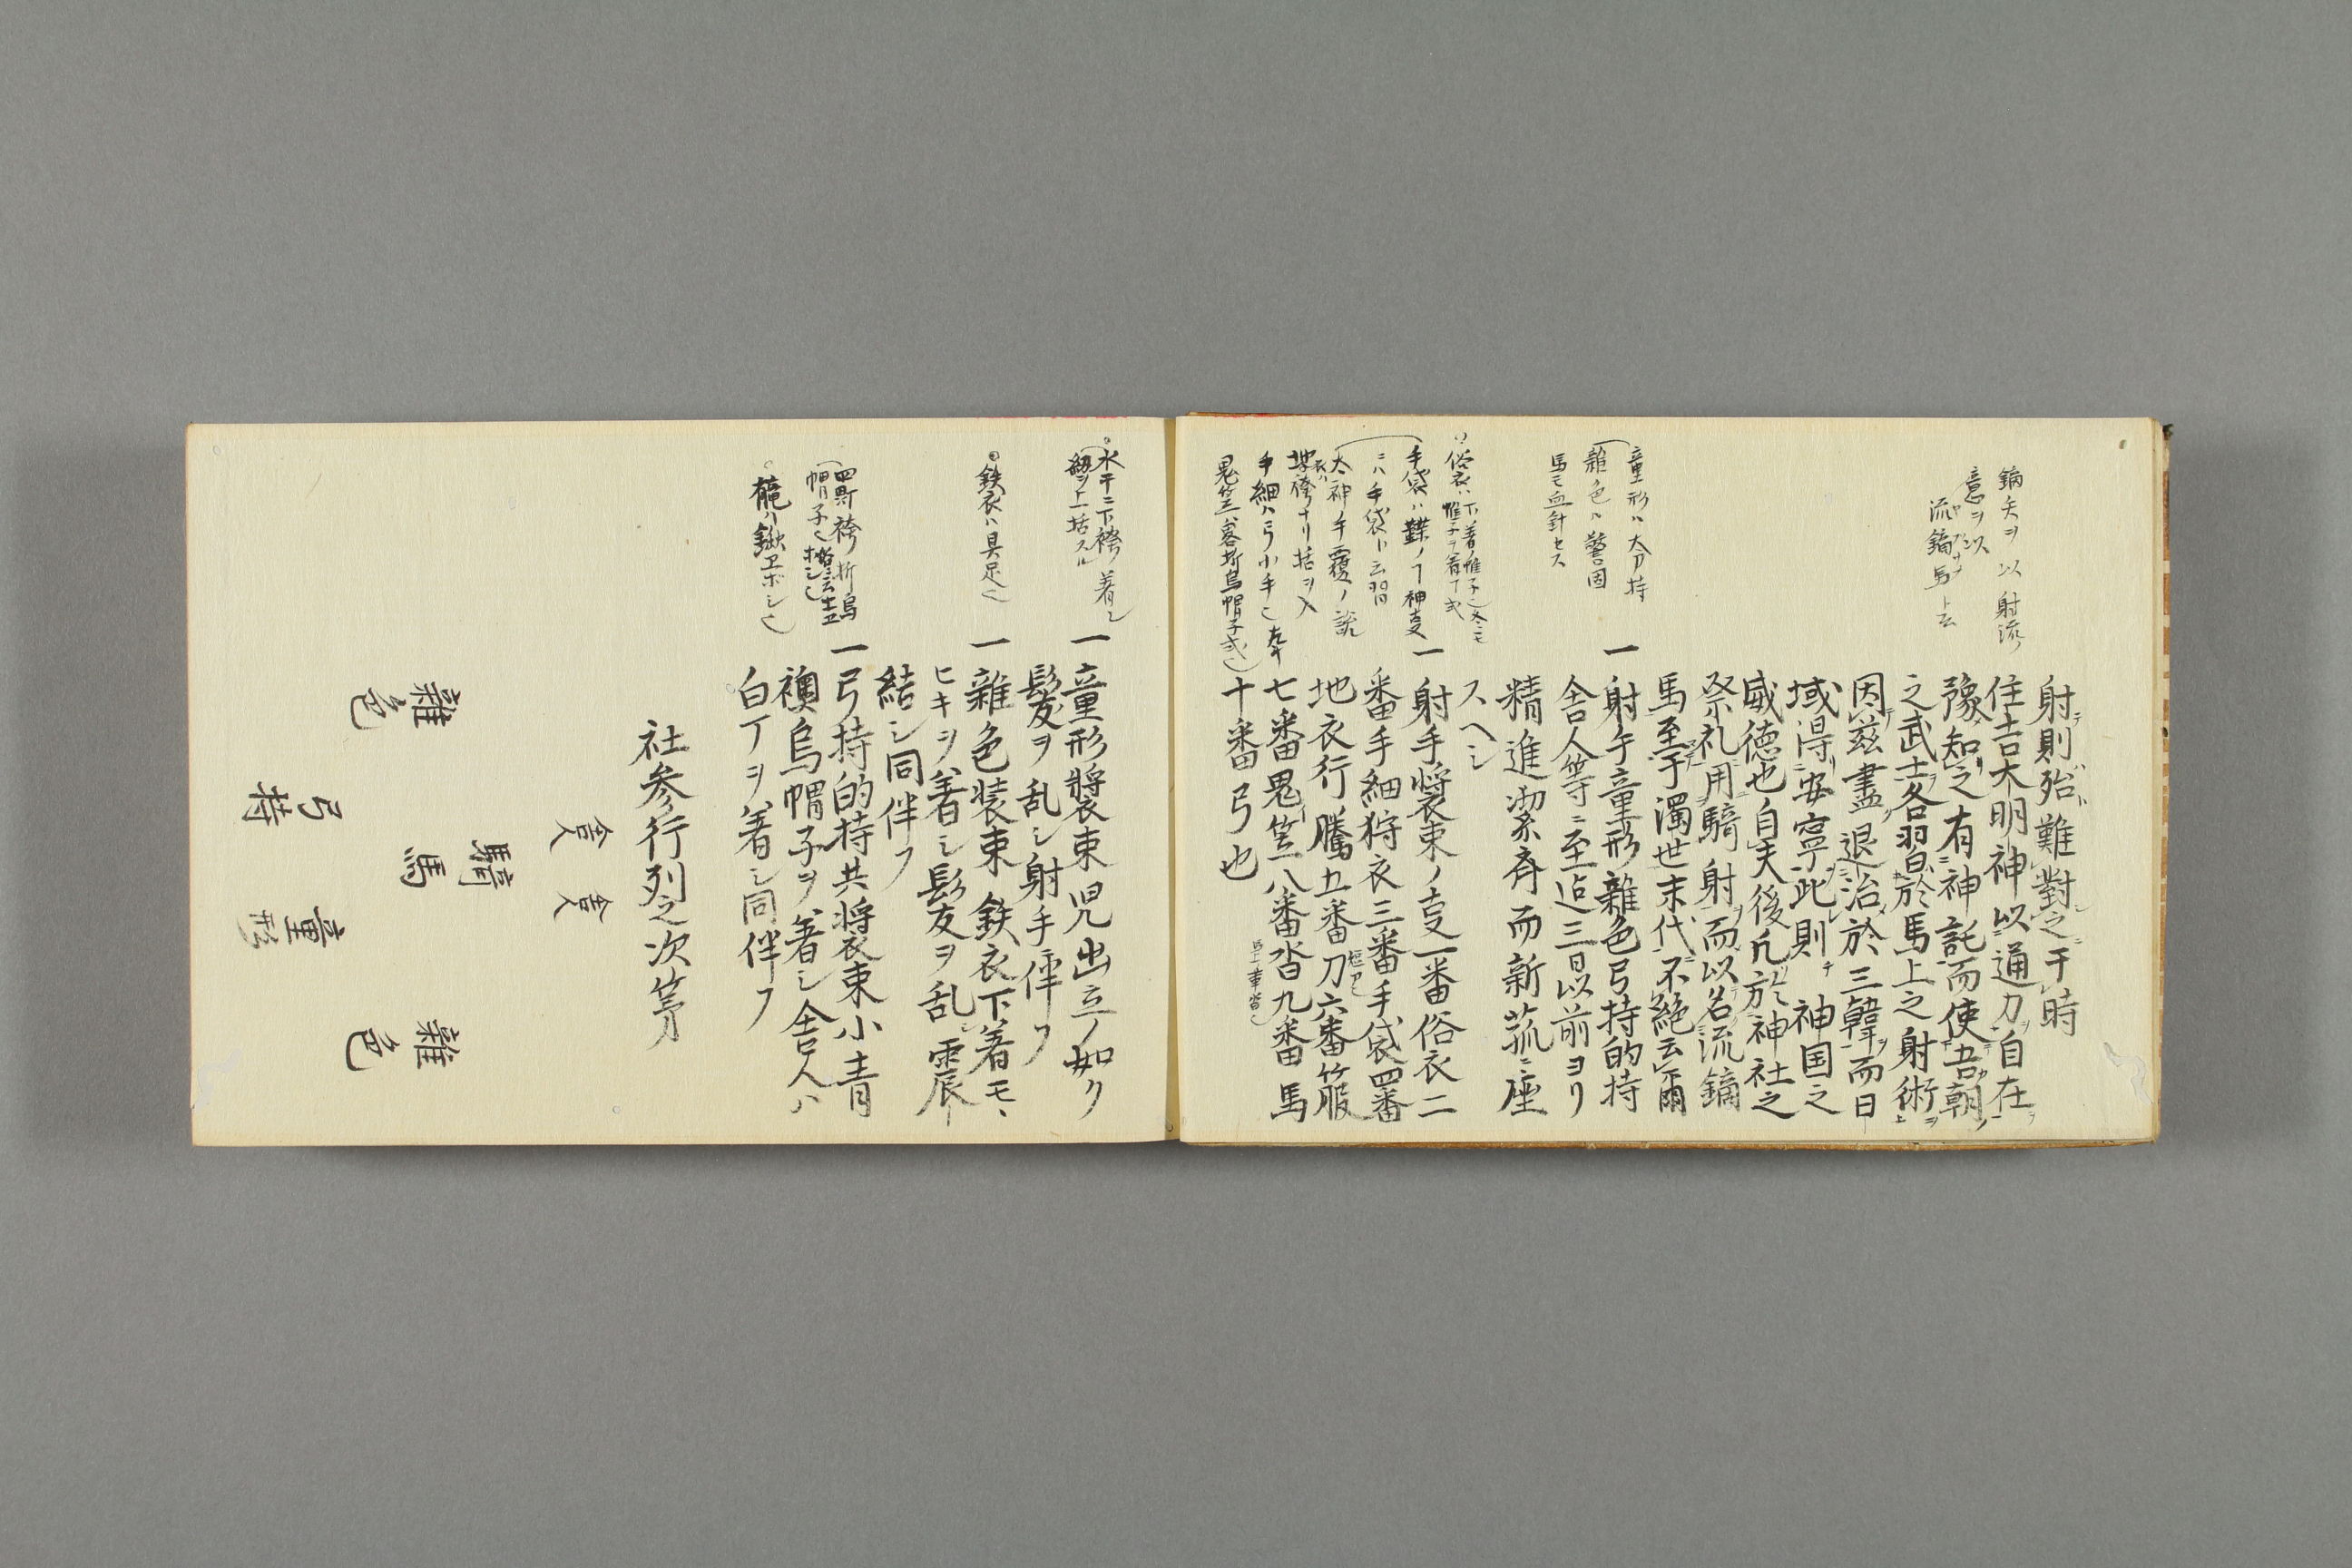 鏑矢ヲ以射流ノ
意ヲ以
流鏑馬ト云
射則殆難對之于時
住吉大明神以通力自在
豫知之有神託而使吾朝
之武士各習於馬上之射術
因茲盡退治於三韓而日
域得安寧此則神国之
威徳也自夫後凡於神社之
祭礼用騎射而以名流鏑
馬至于濁世末代不絶云爾
童形ハ太刀持
雑色ハ警固
馬モ血針セス
一射手童形雑色弓持的持
舎人等ニ至迠三日以前ヨリ
精進潔斉而新菰ニ座
スヘシ
俗衣ハ下着帷子也冬ニモ
帷子ヲ着スル
手袋ハ
ニハ手袋ト云習
大神手覆ノ説
地衣ハ袴ナリ括ヲ入
手細ハ弓小手也
一射手装束ノ支一番俗衣二
番手細狩衣三番手袋四番
地衣行騰五番刀六番箙
七番鬼笠八番沓九番馬
十番弓也
水干ニ下袴着シ
紐ヲ上括スル
一童形装束児出立ノ如ク
髪ヲ乱シ射手伴フ
鉄衣ハ具足也
一雑色装束鉄衣下着モヽ
ヒキヲ着シ髪ヲ乱
結シ同伴フ
袴折烏
帽子也
一弓持的持共装束小青
襖烏帽子ヲ着シ舎人ハ
白丁ヲ着シ同伴フ
社参行列之次第
舎人
舎人
騎馬
雑色
雑色
弓持
童形